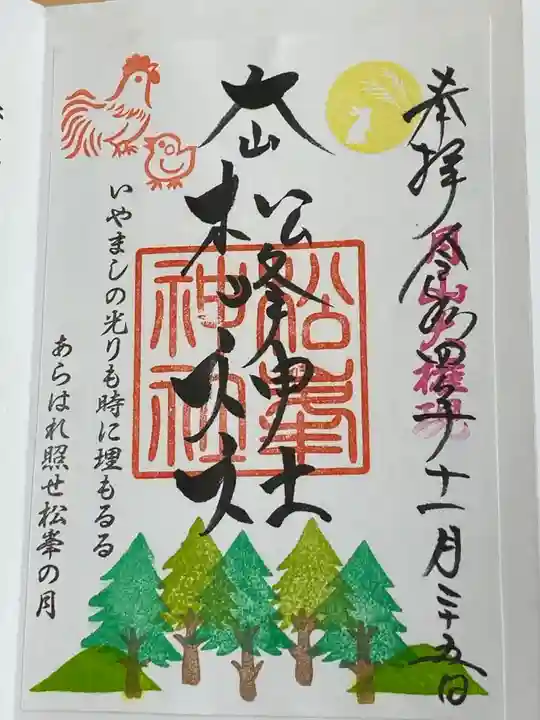 奉拝
令和四年十一月二十五日
月山大権現
太山
松峯神社
松峯神社
いやましの光りも時に埋もるる
あらはれ照せ松峯の月